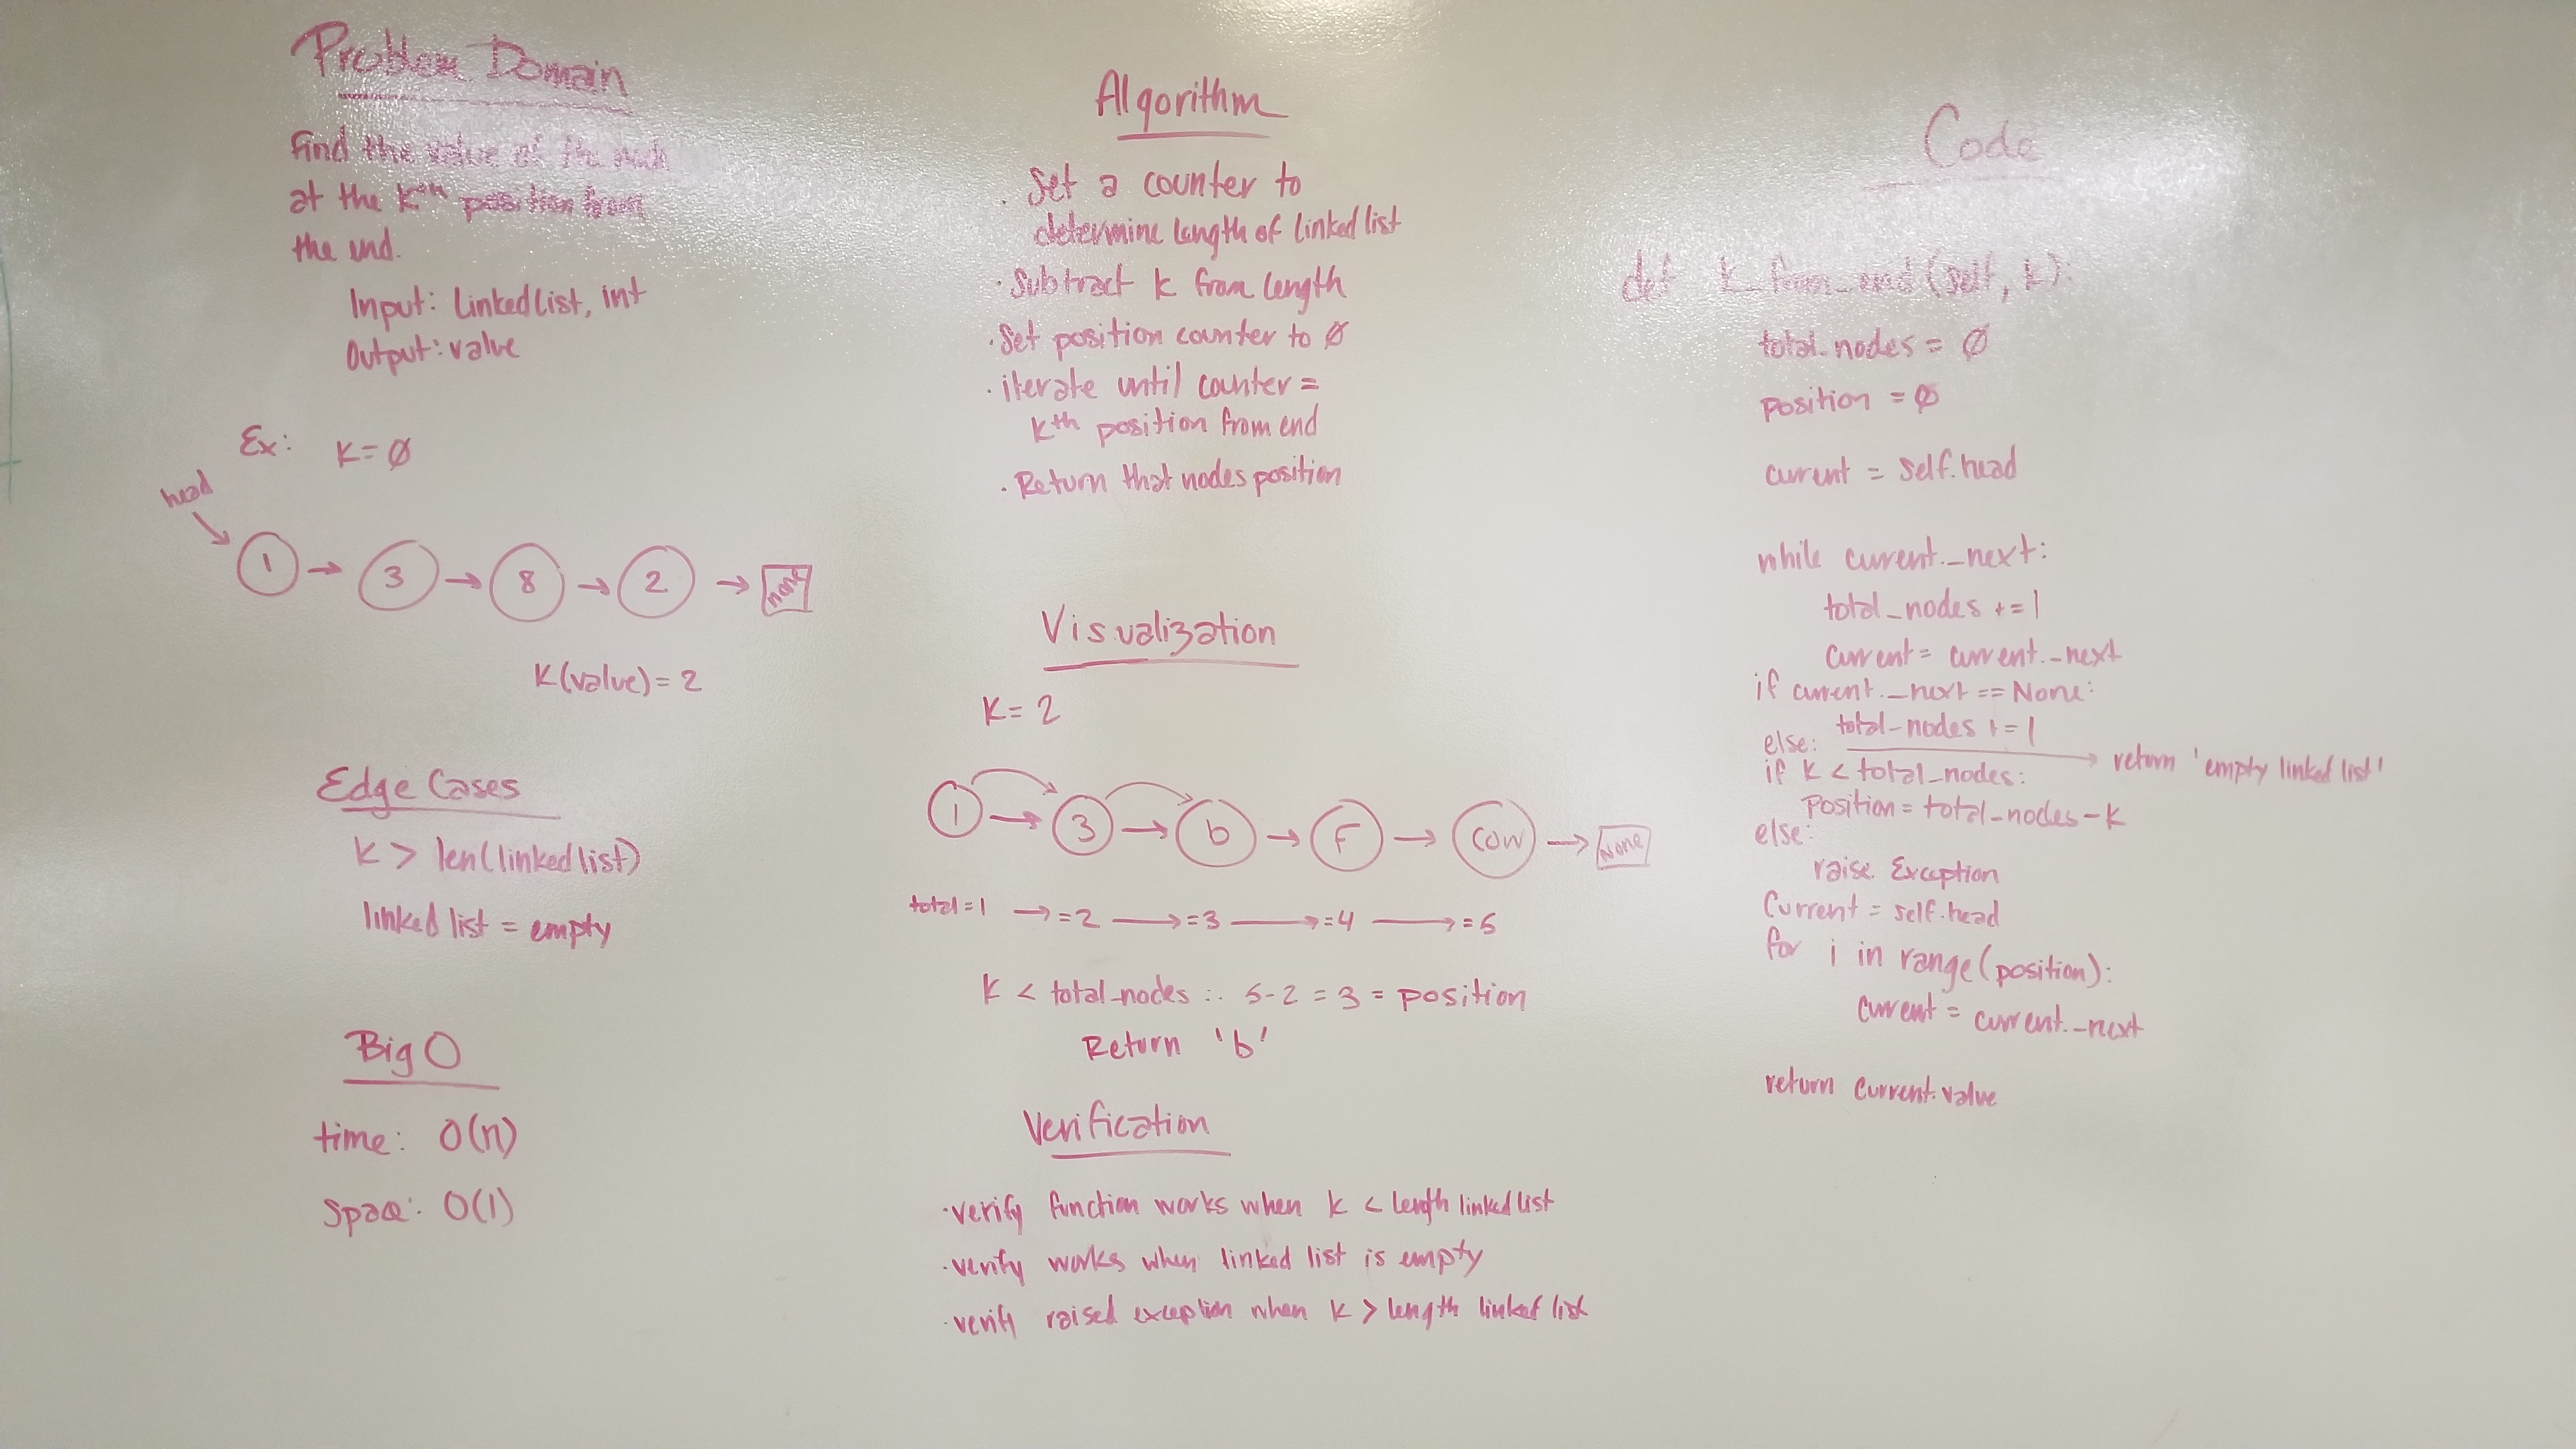 Problem Domain
Find the value of the node
at the kth position from
the end.
Input: Linked list, int
Output: value
Ex: K = Ø
head
1 → 3 → 8 → 2 → none
K(value) = 2
Edge Cases
k > len(linked list)
linked list = empty
Big O
time: O(n)
Space: O(1)
Algorithm
· Set a counter to
determine length of linked list
· Subtract k from length
· Set position counter to Ø
· iterate until counter =
kth position from end
· Return that nodes position
Visualization
K = 2
1 → 3 → b → F → COW → None
total = 1 → = 2 → = 3 → = 4 → = 5
K < total_nodes ∴ 5-2 = 3 = position
Return 'b'
Verification
· verify function works when k < length linked list
· verify works when linked list is empty
· verify raised exception when k > length linked list
Code
def k_from_end(self, k):
total_nodes = Ø
position = Ø
current = self.head
while current._next:
total_nodes += 1
current = current._next
if current._next == None:
total_nodes += 1
else: → return 'empty linked list'
if k < total_nodes:
position = total_nodes - k
else:
raise Exception
Current = self.head
for i in range(position):
current = current._next
return current.value